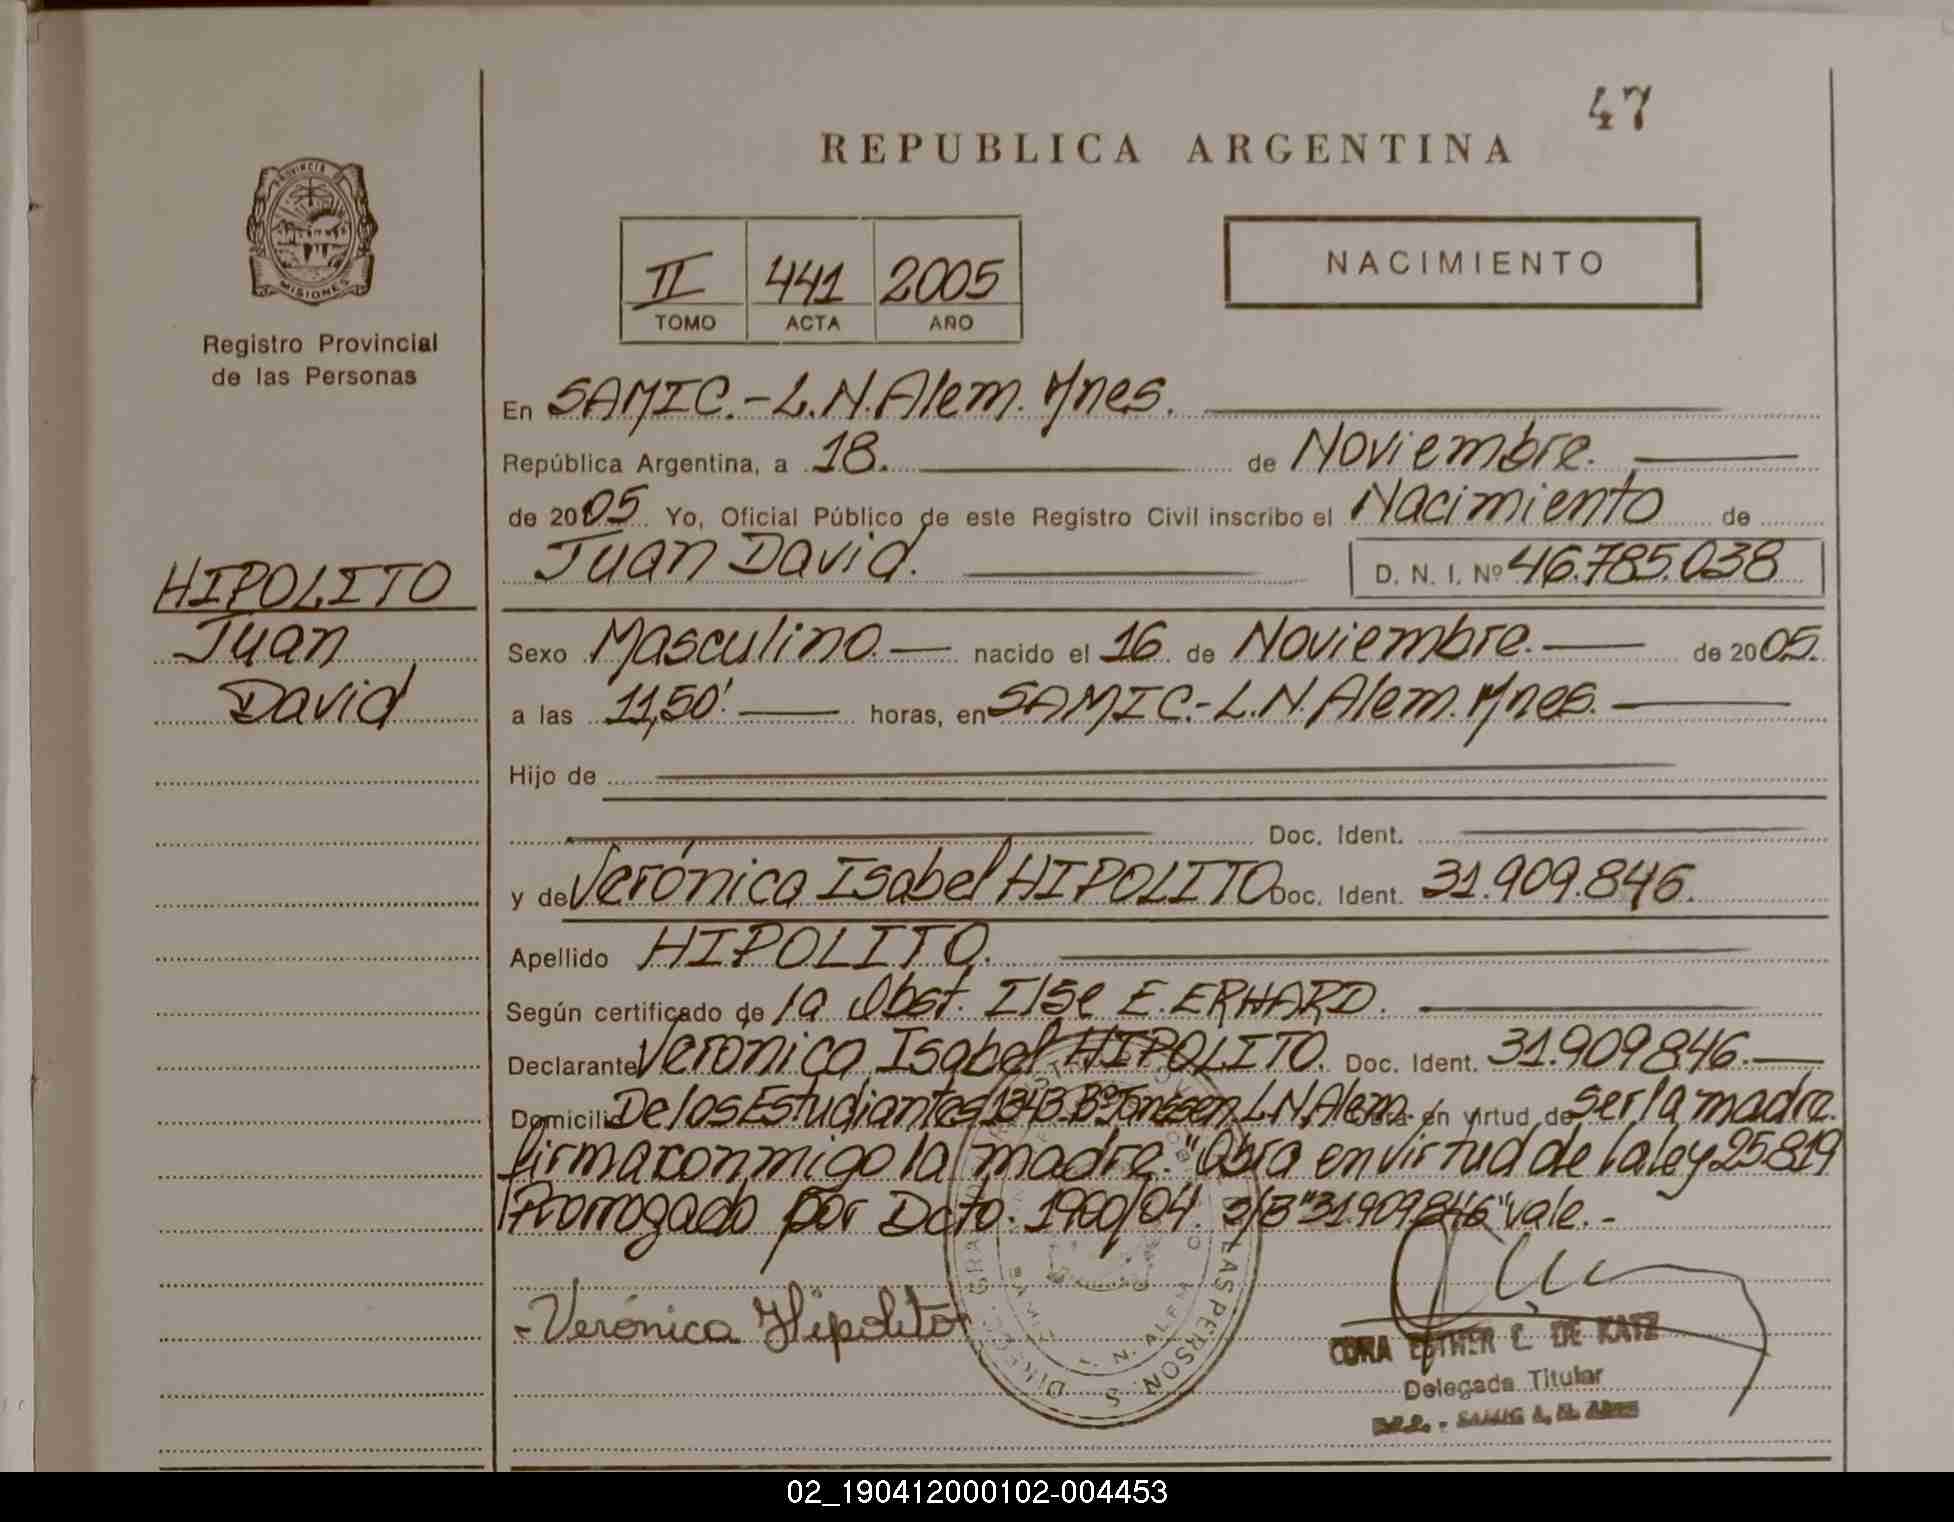 47
REPUBLICA ARGENTINA
PROVINCIA D
MISIONES
Registro Provincial
de las Personas
II 441 2005
TOMO ACTA AÑO
NACIMIENTO
En SAMIC.-L.N.Alem. Mnes.
República Argentina, a 18. de Noviembre.
de 2005 Yo, Oficial Público de este Registro Civil inscribo el Nacimiento de
Juan David. D. N. I. Nº 46.785.038
HIPOLITO
Juan
David
Sexo Masculino. nacido el 16 de Noviembre. de 2005.
a las 11,50' horas, en SAMIC.-L.N.Alem. Mnes.
Hijo de
Doc. Ident.
y de Verónica Isabel HIPOLITO Doc. Ident. 31.909.846.
Apellido HIPOLITO.
Según certificado de la Obst. Ilse E. ERHARD.
Declarante Verónica Isabel HIPOLITO. Doc. Ident. 31.909846.
Domicilio De los Estudiantes 1343 Bº L.N.Alem. en virtud de ser la madre.
firma conmigo la madre. "Obra en virtud de la ley 25819
Prorrogado por Dcto. 1900/04. S/B "31.909.846" vale.-
-Verónica Hipolito
LAS PERSON S
L. N. ALEM
CORA ESTHER C. DE KATZ
Delegada Titular
02_190412000102-004453